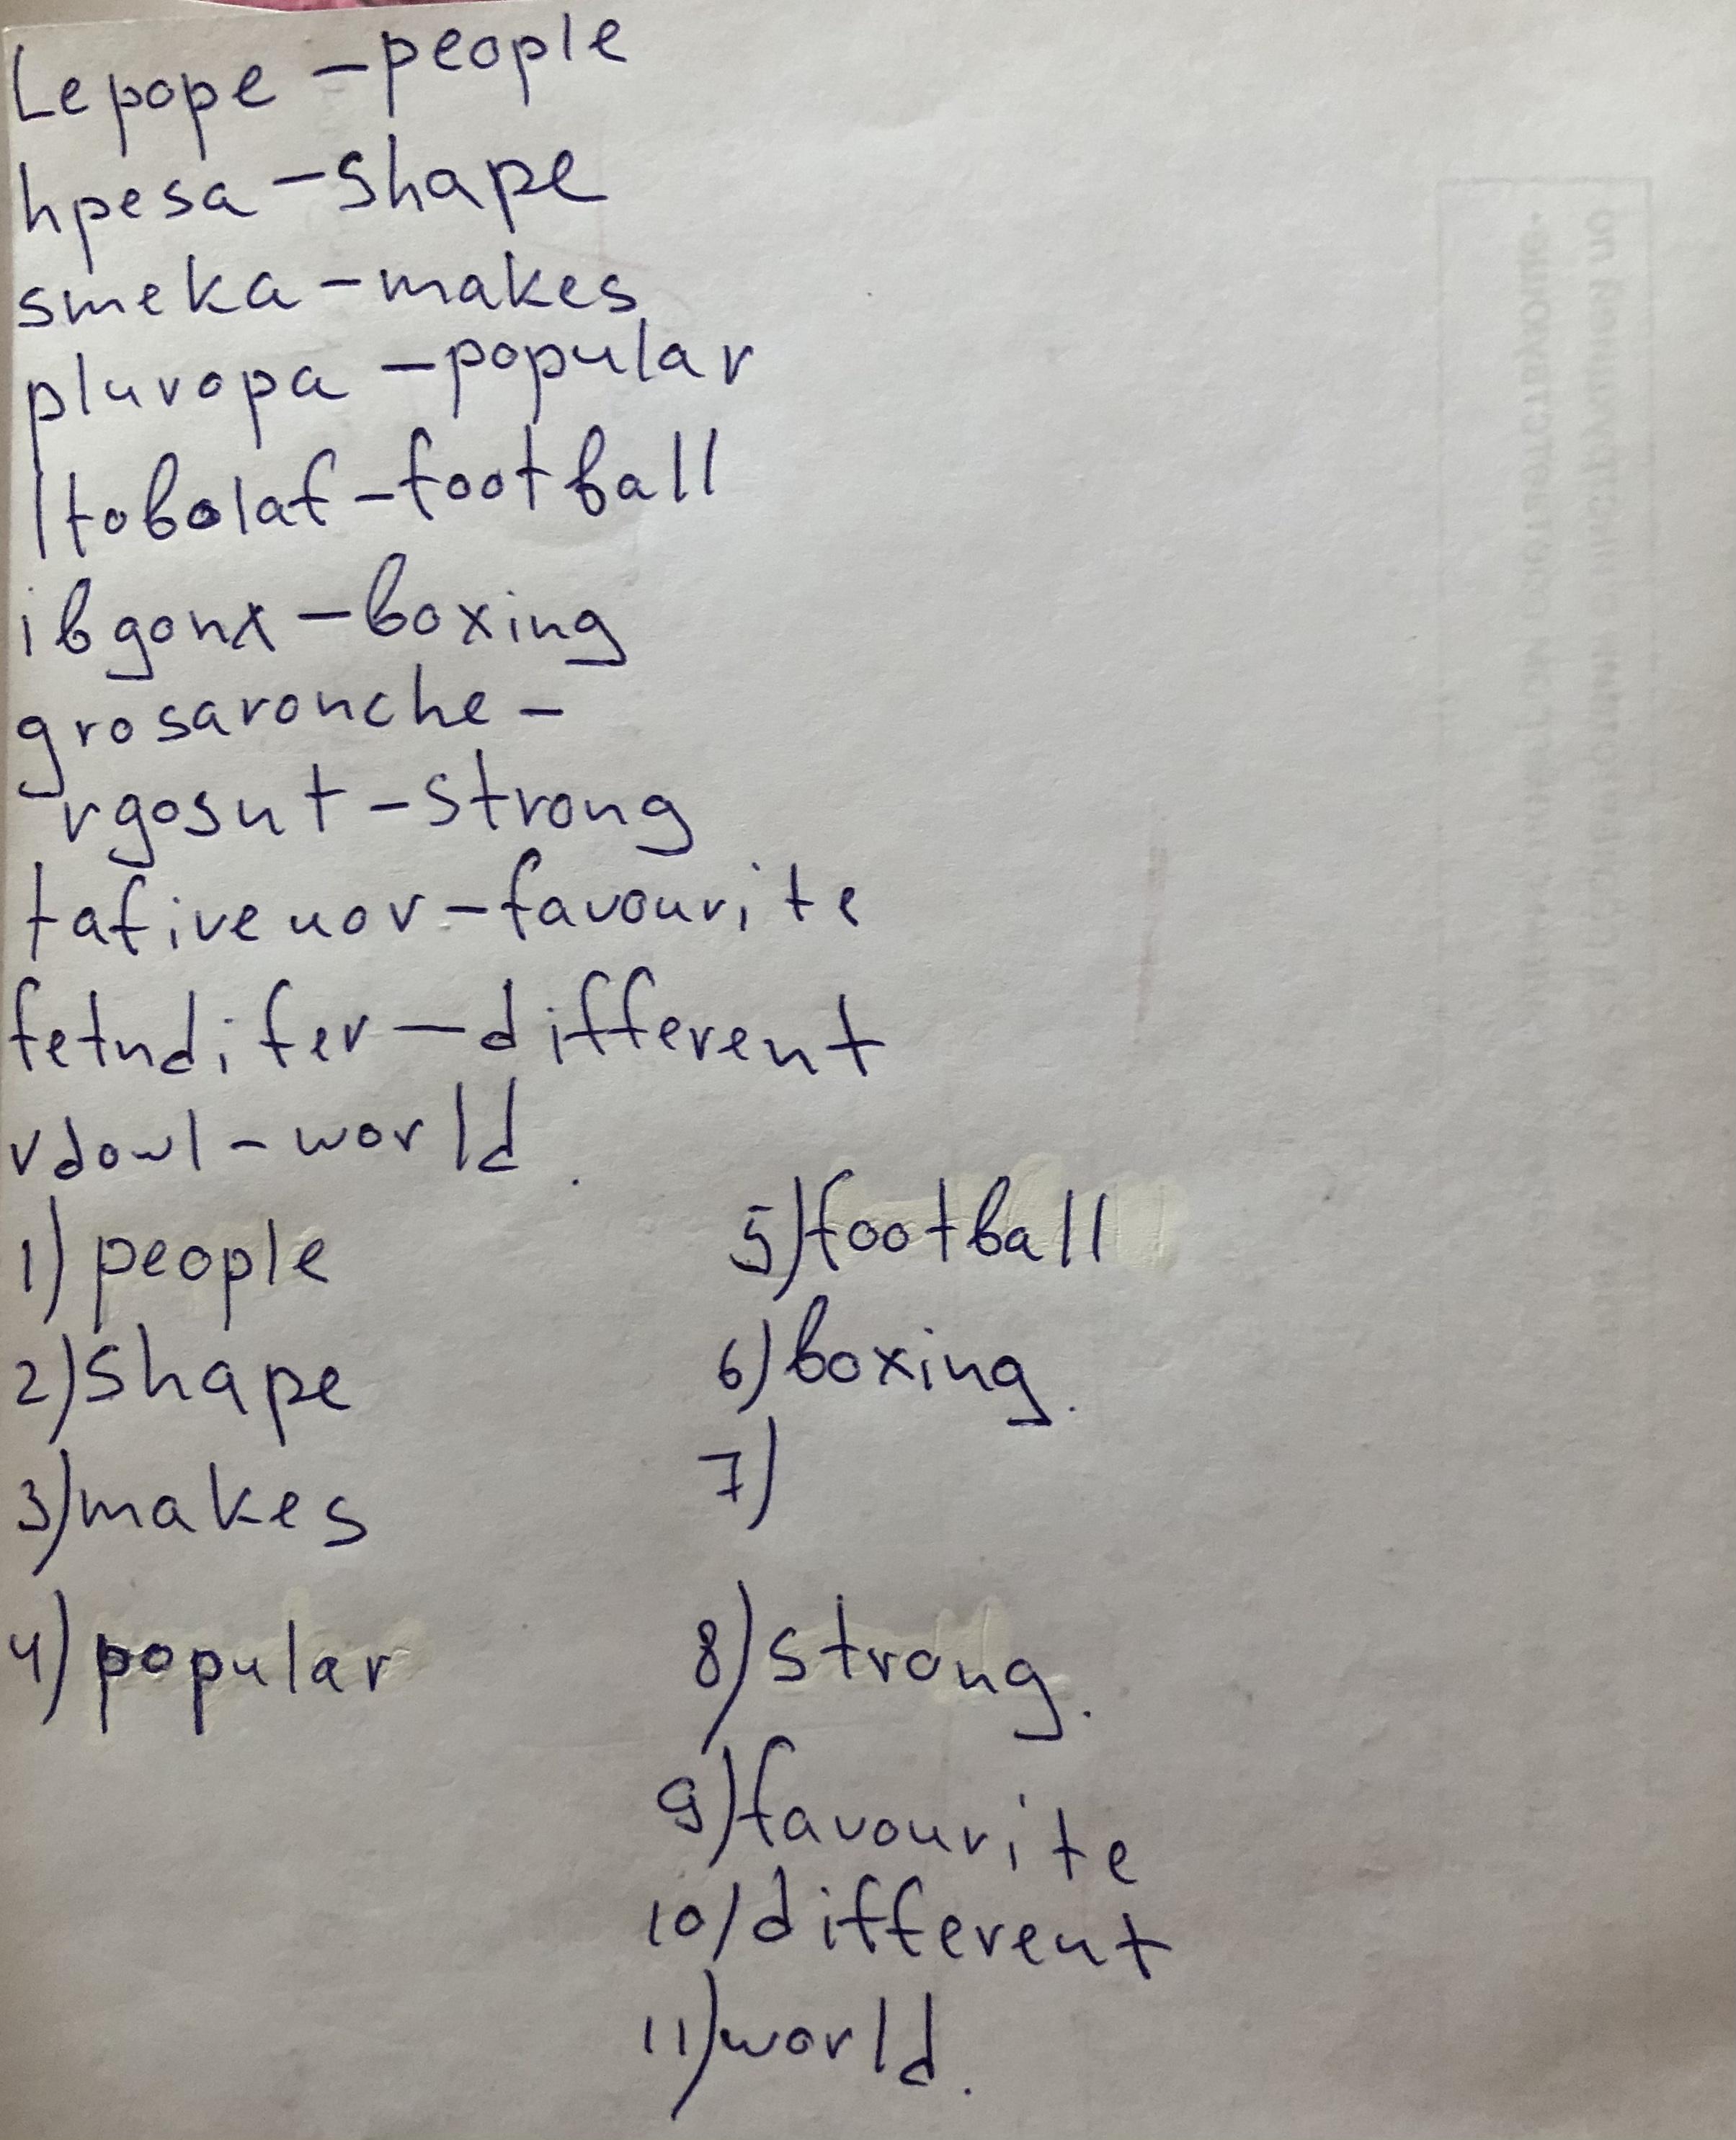 Lepope – people
hpesa – shape
smeka – makes
pluropa – popular
ltobolaf – football
ibgonx – boxing
grosaronche –
rgosnt – strong
tafiveuor – favourite
fetndifer – different
rdowl – world.
1) people
2) shape
3) makes
4) popular
5) football
6) boxing.
7)
8) strong.
9) favourite
10) different
11) world.